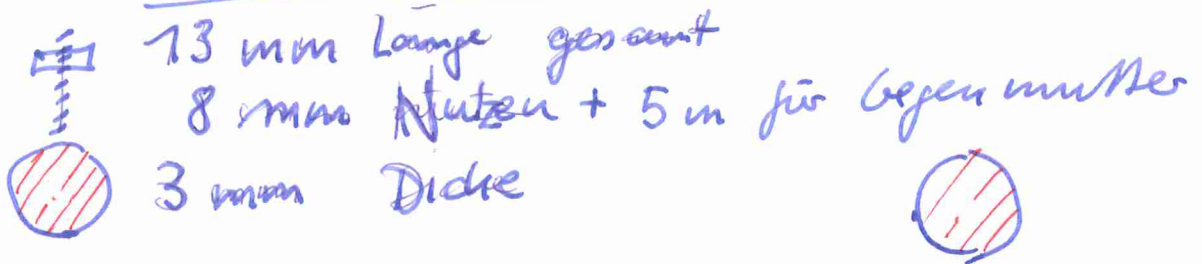 13 mm Länge gesamt
8 mm Nutzen + 5 m für Gegenmutter
3 mm Dicke